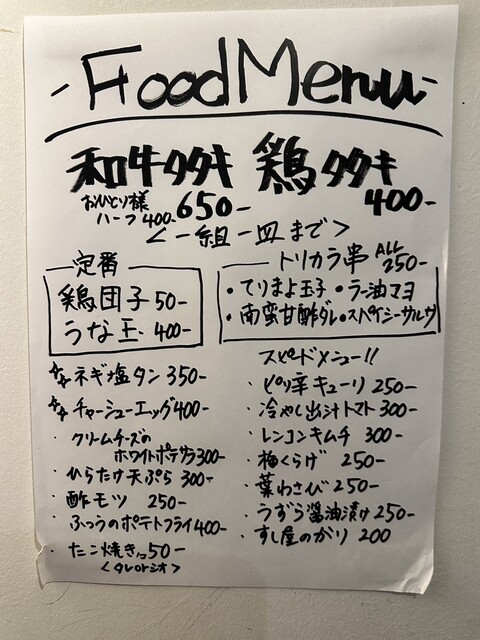 -Food Menu-
和牛タタキ 鶏タタキ
おひとり様 650- 400-
ハーフ 400-
<一組一皿まで>
定番
鶏団子 50-
うな玉 400-
トリカラ串 ALL 250-
・てりまよ玉子 ・ラー油マヨ
・南蛮甘酢ダレ・スパイシーサルサ
ネギ塩タン 350-
チャーシューエッグ 400-
・クリームチーズの
ホワイトポテサラ 300-
・ひらたけ天ぷら 300-
・酢モツ 250-
・ふつうのポテトフライ 400-
・たこ焼き 50-
<タレorシオ>
スピードメニュー!!
・ピリ辛キューリ 250-
・冷やし出汁トマト 300-
・レンコンキムチ 300-
・梅くらげ 250-
・葉わさび 250-
・うずら醤油漬け 250-
・すし屋のガリ 200